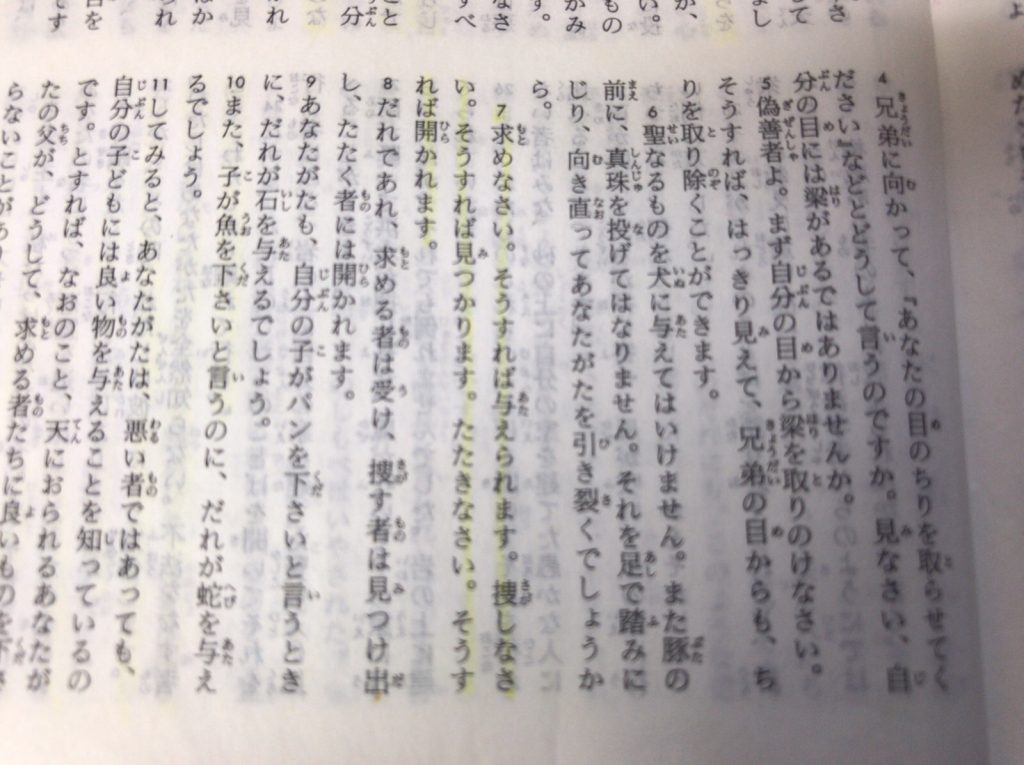 4 兄弟に向かって、『あなたの目のちりを取らせてく
ださい』などとどうして言うのですか。見なさい、自
分の目には梁があるではありませんか。
5 偽善者よ。まず自分の目から梁を取りのけなさい。
そうすれば、はっきり見えて、兄弟の目からも、ち
りを取り除くことができます。
6 聖なるものを犬に与えてはいけません。また豚の
前に、真珠を投げてはなりません。それを足で踏みに
じり、向き直ってあなたがたを引き裂くでしょうか
ら。
7 求めなさい。そうすれば与えられます。捜しなさ
い。そうすれば見つかります。たたきなさい。そうす
れば開かれます。
8 だれであれ、求める者は受け、捜す者は見つけ出
し、たたく者には開かれます。
9 あなたがたも、自分の子がパンを下さいと言うとき
に、だれが石を与えるでしょう。
10 また、子が魚を下さいと言うのに、だれが蛇を与え
るでしょう。
11 してみると、あなたがたは、悪い者ではあっても、
自分の子どもには良い物を与えることを知っているの
です。とすれば、なおのこと、天におられるあなたが
たの父が、どうして、求める者たちに良いものを下さ
らないことがあ